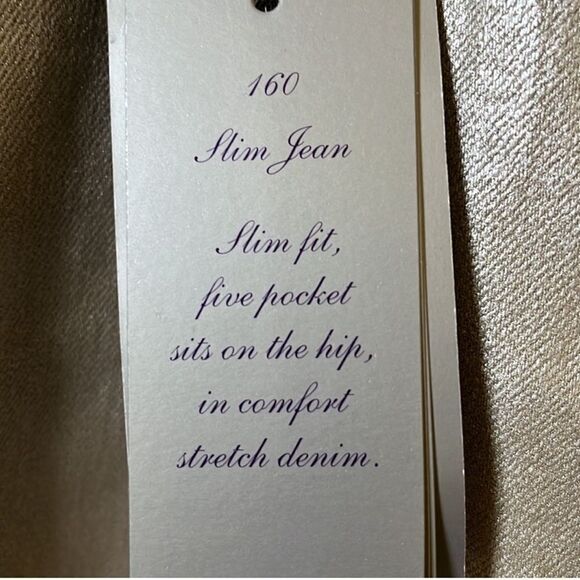 160
Slim Jean
Slim fit,
five pocket
sits on the hip,
in comfort
stretch denim.